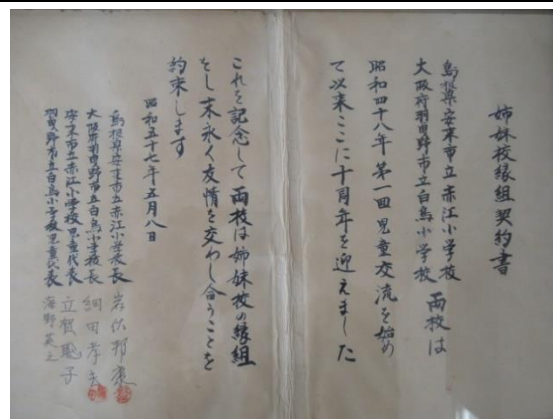 姉妹校縁組契約書
島根県安来市立赤江小学校
大阪府羽曳野市立白鳥小学校
両校は
昭和四十八年第一回児童交流を始め
て以来ここに十周年を迎えました
これを記念して両校は姉妹校の縁組
をし末永く友情を交わし合うことを
約束します
昭和五十七年五月八日
島根県安来市立赤江小学校長
大阪府羽曳野市立白鳥小学校長 細田孝
安来市立赤江小学校児童代表 立賀 子
羽曳野市立白鳥小学校児童代表 海野英之